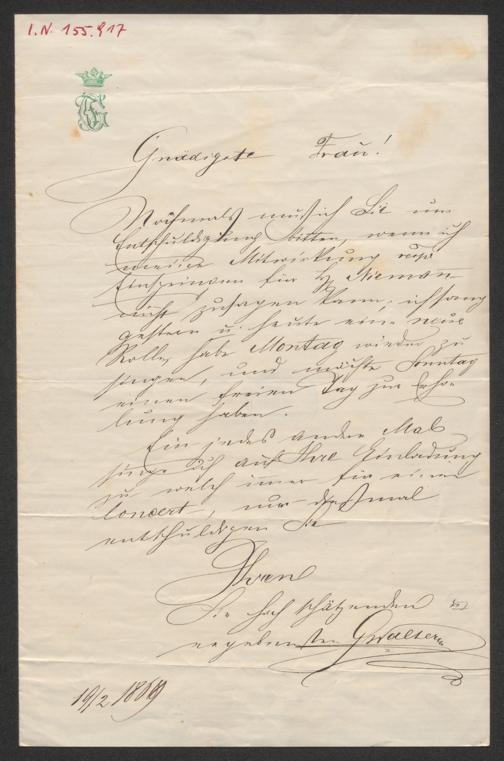 I.N. 155.917
Gnädigste Frau!
Nochmals muß ich Sie um
Entschuldigung bitten, wenn ich
meine Mitwirkung
Einspringen für H. Nieman
nicht zusagen kann; ich sang
gestern u. heute eine neue
Rolle, habe Montag wieder zu
singen, und möchte Sonntag
einen freien Tag zur Erho-
lung haben.
Ein jedes andere Mal
singe ich auf Ihre Einladung
zu welch imer für einem
Concert, nur dießmal
entschuldigen Sie
Ihren
Sie hoch schätzenden
ergebensten GWalter
19/2 1869